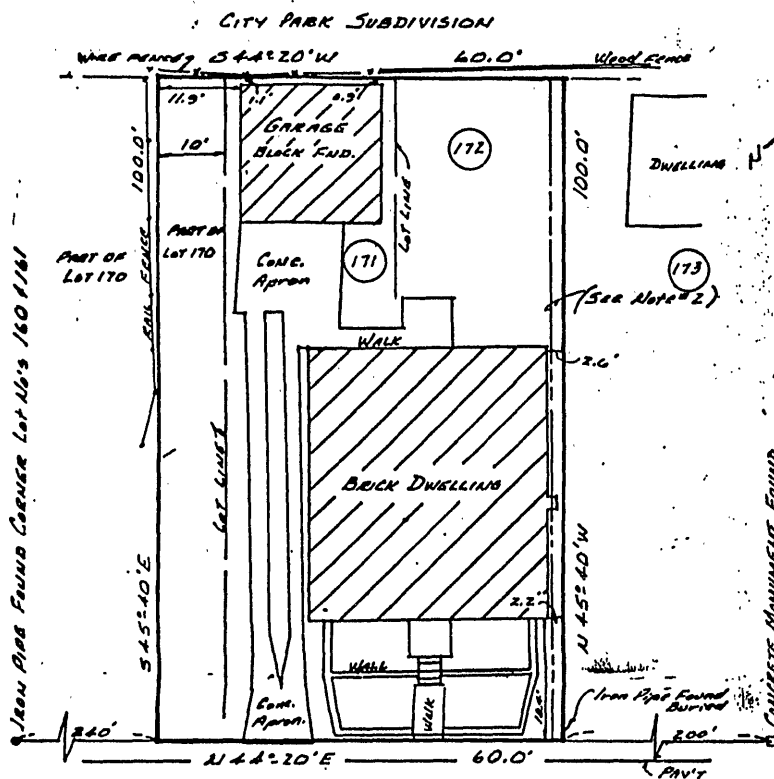 CITY PARK SUBDIVISION
WIRE FENCE
S 44°20' W
60.0'
Wood Fence
11.9'
1.1'
0.9'
GARAGE
BLOCK FND.
172
10'
100.0'
100.0'
DWELLING
LOT LINE
PART OF
LOT 170
PART OF
LOT 170
RAIL FENCE
CONC.
APRON
171
173
(SEE NOTE #2)
WALK
2.6'
IRON PIPE FOUND CORNER LOT NO'S 160 & 161
LOT LINE
BRICK DWELLING
S 45°40' E
N 45°40' W
CONCRETE MONUMENT FOUND
2.2'
WALL
WALK
CONC.
APRON.
Iron Pipe Found
Buried
240'
N 44°20' E
60.0'
200'
PAV'T